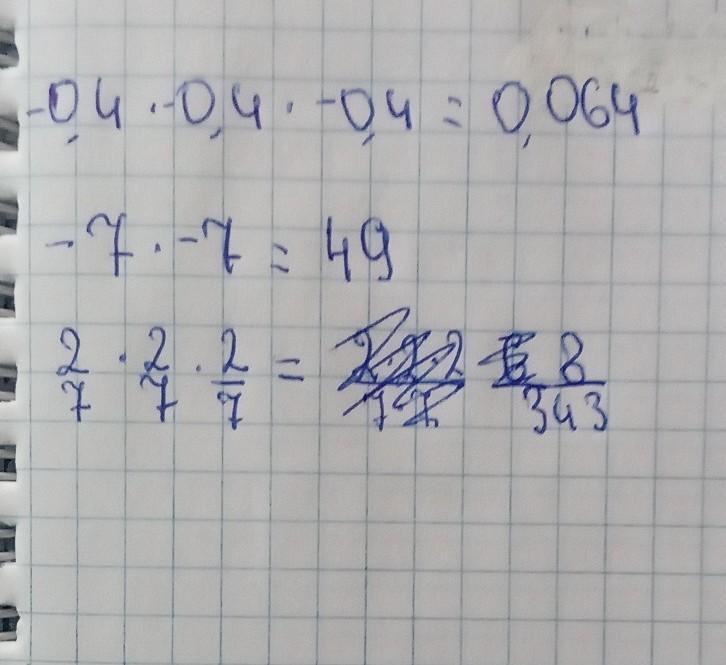 -0,4 · -0,4 · -0,4 = 0,064
-7 · -7 = 49
2/7 · 2/7 · 2/7 = 8/343